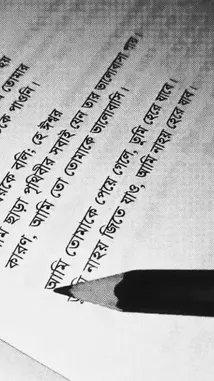 তোমার
কে পাওনি।
কে বলি; হে ঈশ্বর
ছাড়া পৃথিবীর সবাই যেন তার ভালোবাসা পায়।
কারণ, আমি তো তোমাকে ভালোবাসি।
আমি তোমাকে পেয়ে গেলে, তুমি হেরে যাবে।
নাহয় জিতে যাও, আমি নাহয় হেরে যাব।